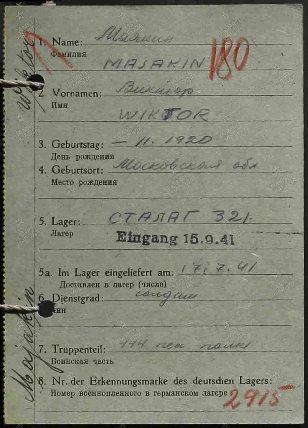 1. Name: Маякин 180
Фамилия
MAJAKIN
2. Vornamen: Виктор
Имя
WIKTOR
3. Geburtstag: — 11. 1920
День рождения
4. Geburtsort: Московская обл
Место рождения
5. Lager: СТАЛАГ 321.
Лагер
Eingang 15.9.41
5a. Im Lager eingeliefert am: 17.7.41
Доставлен в лагер (число)
6. Dienstgrad: солдат
Чин
7. Truppenteil: 174 пех полк
Воинская часть
8. Nr. der Erkennungsmarke des deutschen Lagers:
Номер военнопленного в германском лагере 2915
Majakin
Wiktor